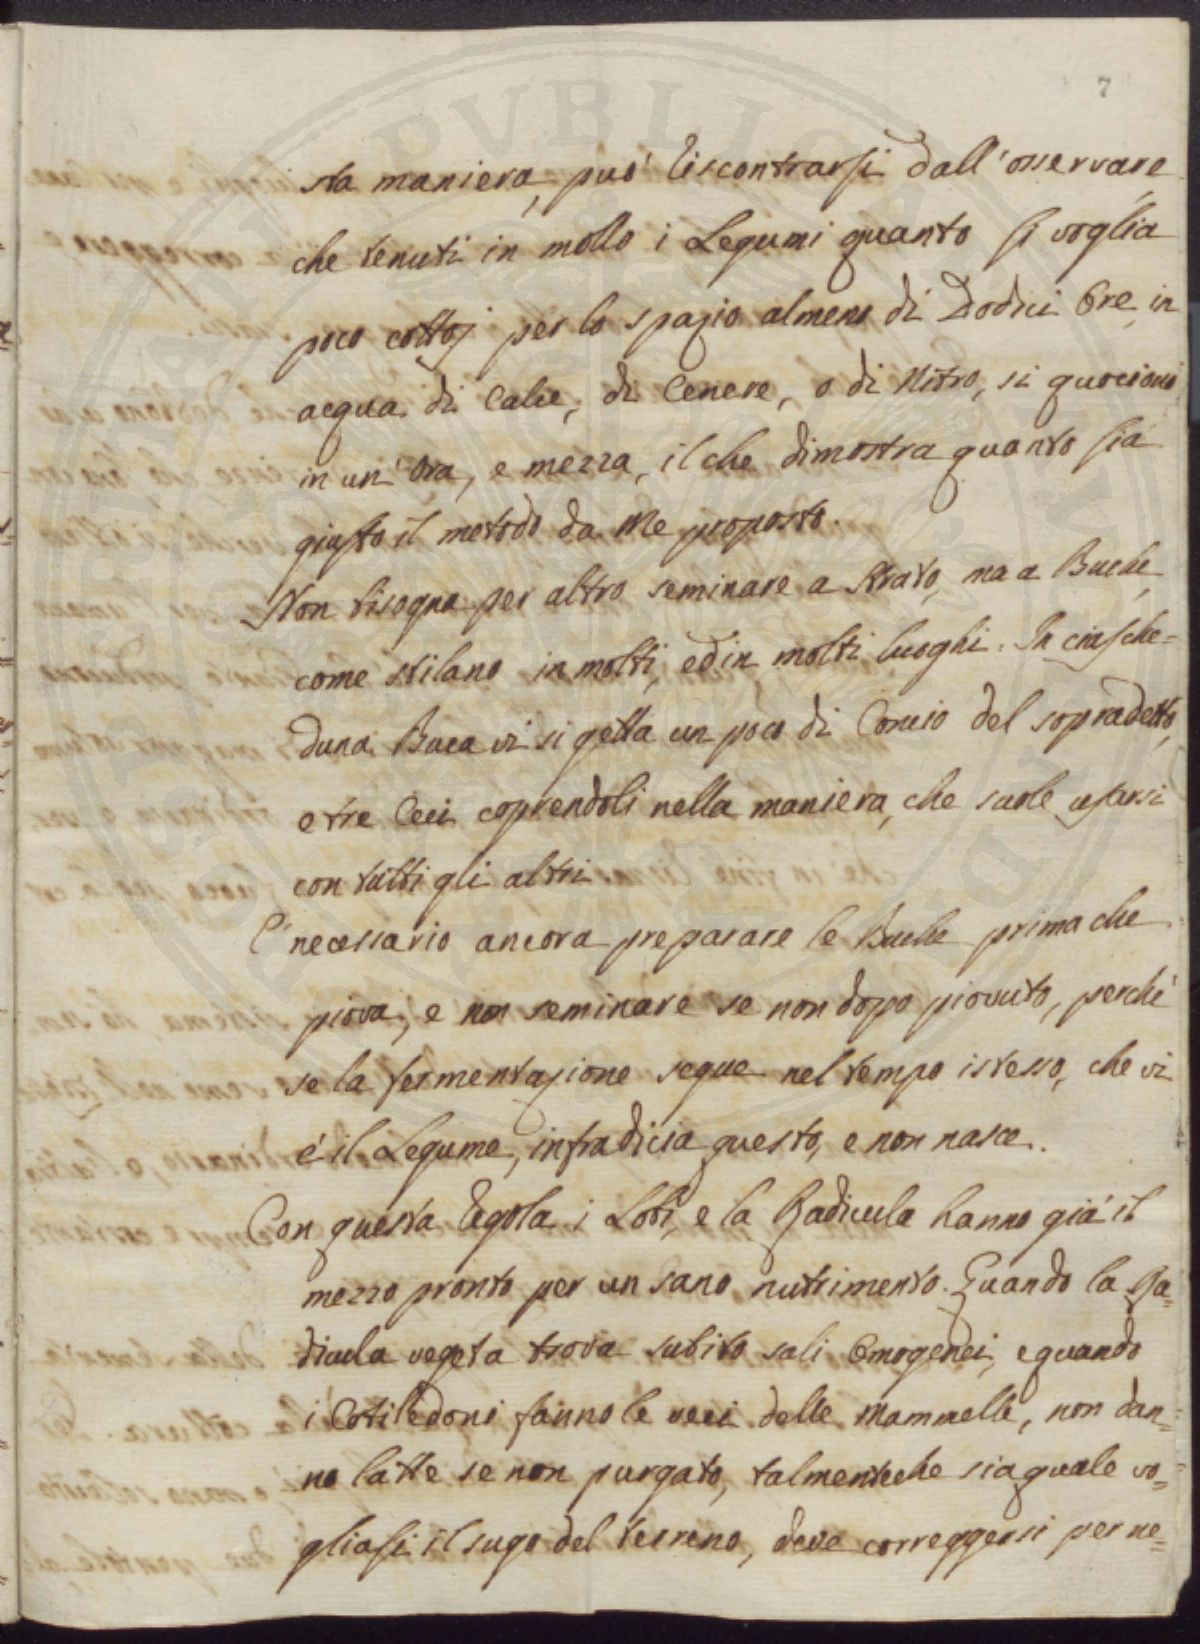 7
sta maniera, può riscontrarsi dall'osservare,
che tenuti in mollo i Legumi quanto si voglia
poco cottoj per lo spazio almeno di Dodici Ore, in
acqua di Calce, di Cenere, o di Nitro, si quociono
in un'Ora, e mezza, il che dimostra quanto sia
giusto il metodo da Me proposto.
Non bisogna per altro seminare a strato, ma a Buche,
come stilano in molti, ed in molti luoghi. In ciasche=
duna Buca vi si getta un poco di Concio del sopradetto,
e tre Ceci coprendoli nella maniera, che suole usarsi
con tutti gli altri.
E' necessario ancora preparare le Buche prima che
piova, e non seminare se non doppo piovuto, perchè
se la fermentazione segue nel tempo istesso, che vi
è il Legume, infradicia questo, e non nasce.
Con questa regola i Lobi, e la Radicula hanno già il
mezzo pronto per un sano nutrimento. Quando la Ra=
dicula vegeta trova subito sali Omogenei, e quando
i Cotiledoni fanno le veci delle Mammelle, non dan=
no latte se non purgato, talmenteche sia quale vo=
gliasi il sugo del terreno, deve correggersi per ne=